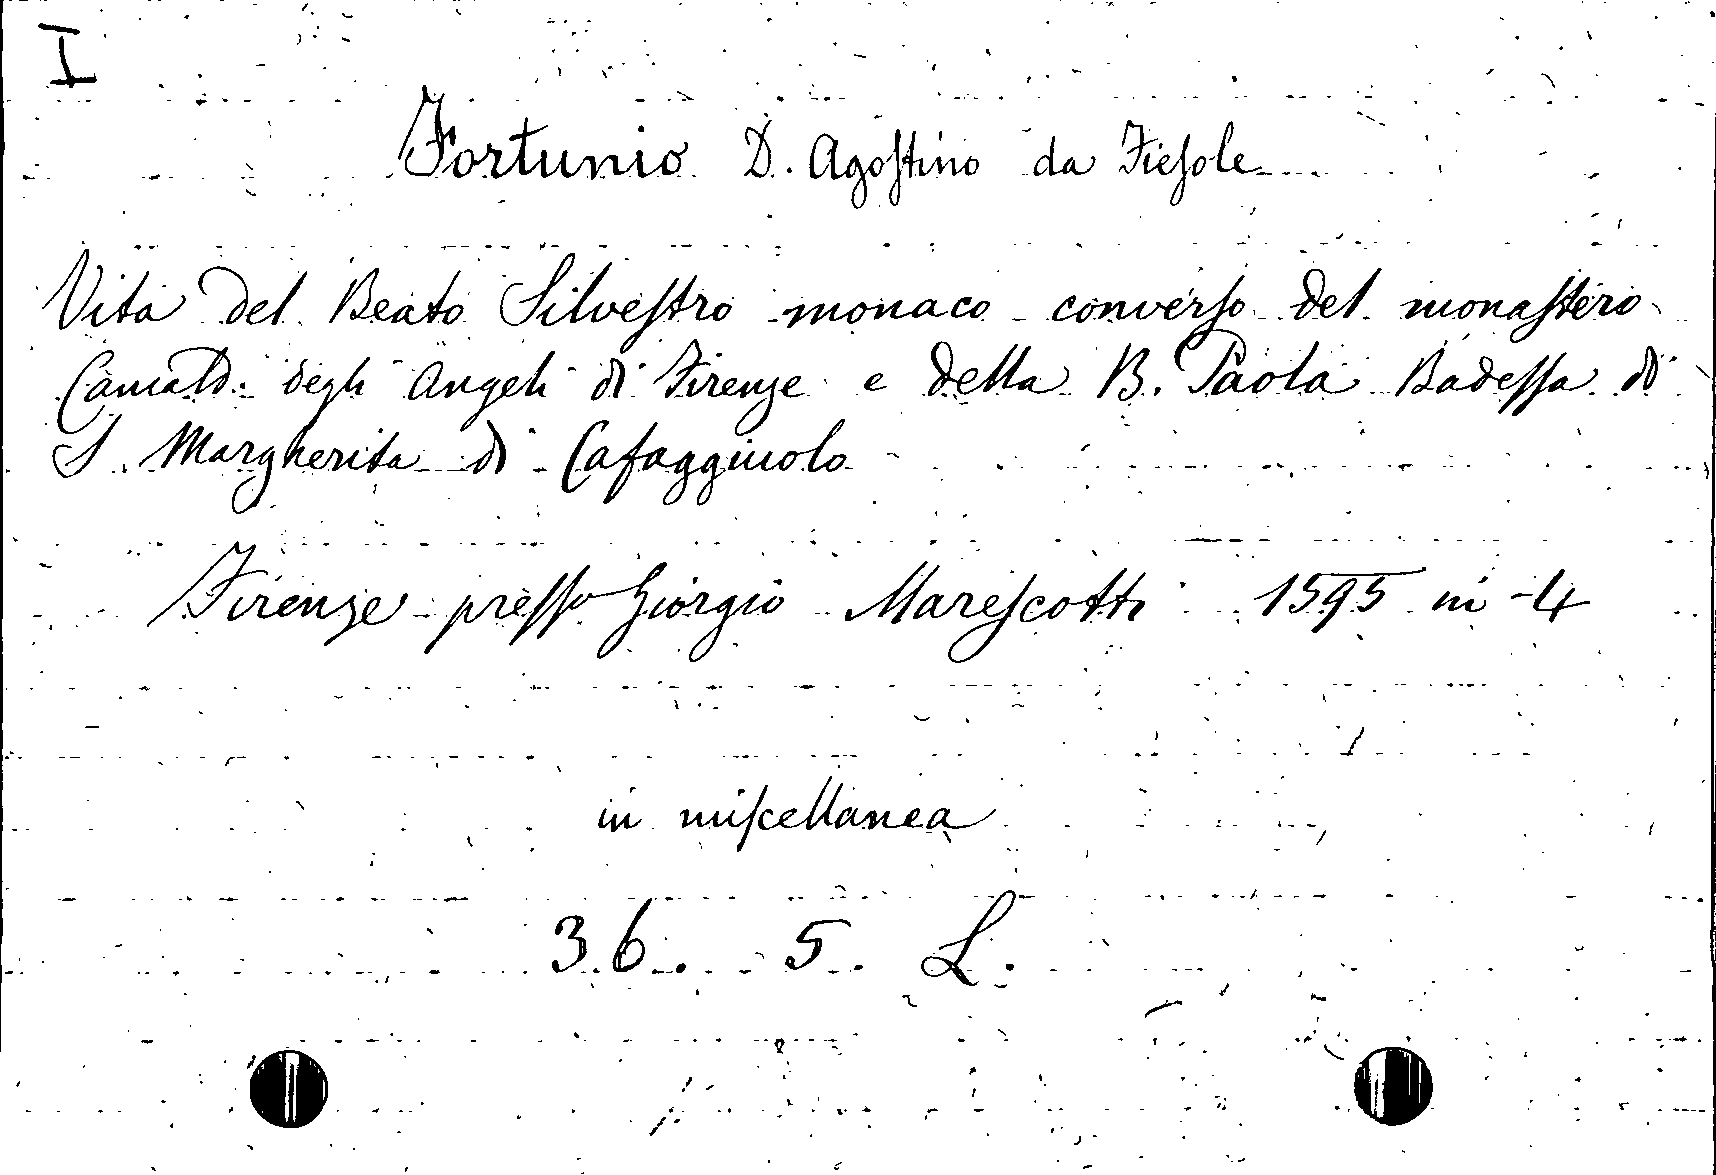 I
Fortunio D. Agostino da Fiesole
Vita del Beato Silvestro monaco converso del monastero
Camald: degli Angeli di Firenze e della B. Paola Badessa di
S. Margherita di Cafaggiuolo
Firenze presso Giorgio Marescotti 1595 in-4
in miscellanea
36. 5. L.